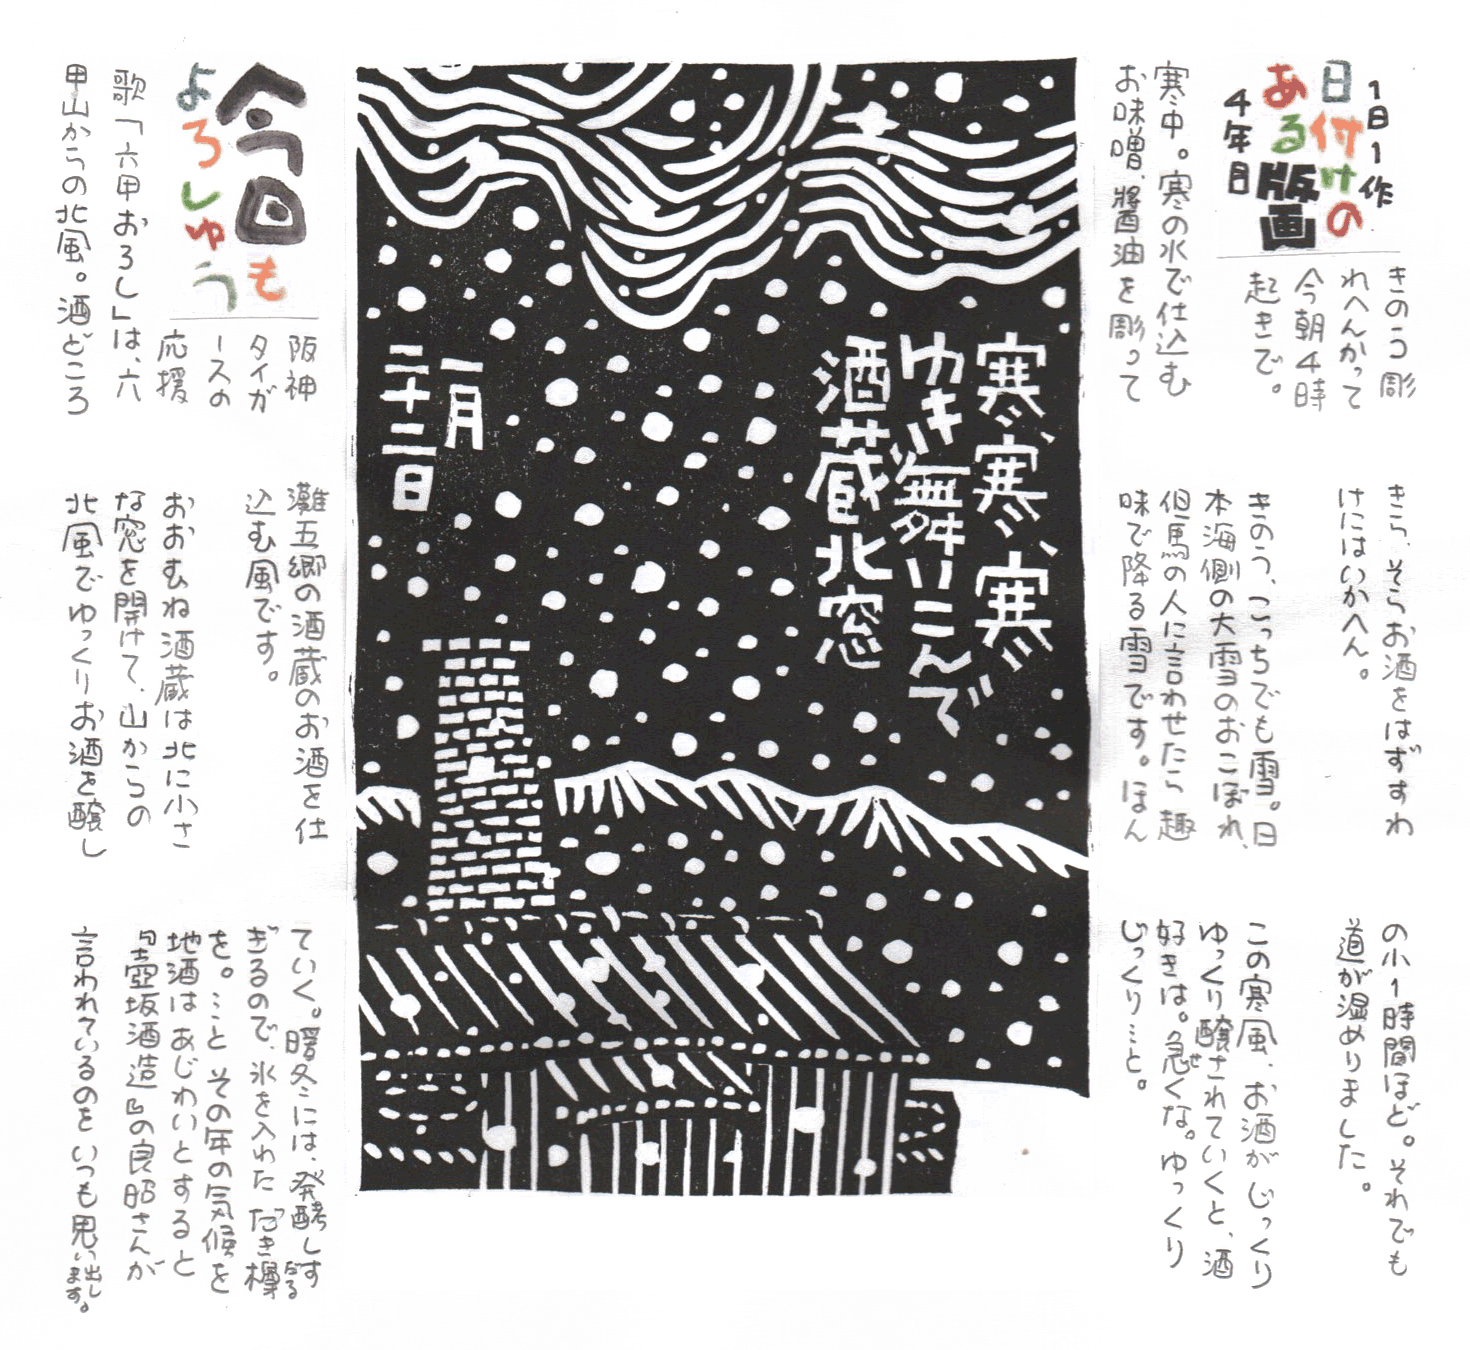 1日1作
日付けの
ある版画
4年目
きのう彫
れへんかって
今朝4時
起きで。
寒中。寒の水で仕込む
お味噌、醤油を彫って
きら、そらお酒をはずすわ
けにはいかへん。
きのう、こっちでも雪。日
本海側の大雪のおこぼれ、
但馬の人に言わせたら趣
味で降る雪です。ほん
の小1時間ほど。それでも
道が温めりました。
この寒風、お酒がじっくり
ゆっくり醸されていくと、酒
好きは。急くな。ゆっくり
せ
じっくり…と。
寒、寒、寒
ゆき舞いこんで
酒蔵北窓
一月
二十二日
今日も
よろしゅう
阪神
タイガ
ースの
応援
歌「六甲おろし」は、六
甲山からの北風。酒どころ
灘五郷の酒蔵のお酒を仕
込む風です。
おおむね酒蔵は北に小さ
な窓を開けて、山からの
北風でゆっくりお酒を醸し
ていく。暖冬には、発酵しす
ぎるので、氷を入れた“だき樽
だる
を。…と その年の気候を
地酒は あじわいとすると
『壺坂酒造』の良昭さんが
言われているのを いつも思い出し
ます。